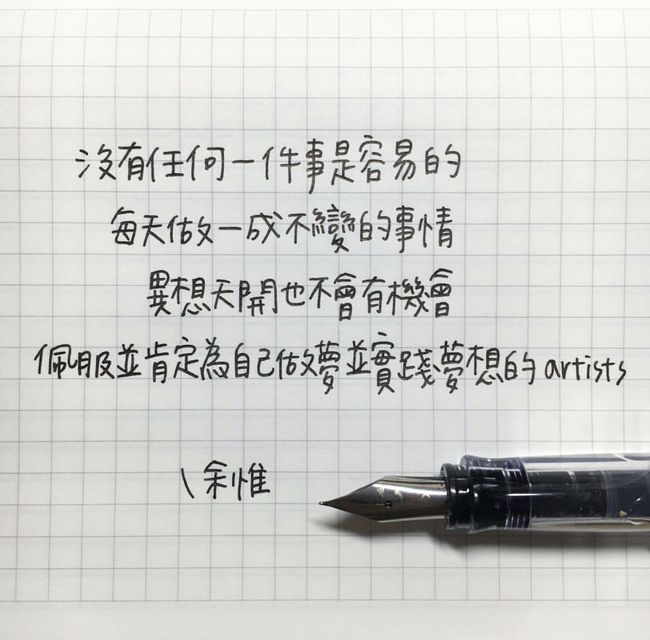 沒有任何一件事是容易的
每天做一成不變的事情
異想天開也不會有機會
佩服並肯定為自己做夢並實踐夢想的 artists
\ 余惟